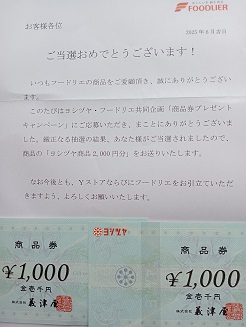 FOODLIER
お客様各位
2025年6月吉日
ご当選おめでとうございます！
いつもフードリエの商品をご愛顧頂き、誠にありがとうござい
ます。
このたびはヨシヅヤ・フードリエ共同企画「商品券プレゼント
キャンペーン」にご応募いただき、まことにありがとうございま
した。厳正なる抽選の結果、あなた様がご当選されましたので、
商品の「ヨシヅヤ商品2,000円分」をお送りいたします。
なお今後とも、Yストアならびにフードリエをお引立ていただ
きますよう、よろしくお願いいたします。
商品券
¥1,000
金壱千円
株式会社 義津屋
ヨシヅヤ
商品券
¥1,000
金壱千円
株式会社 義津屋